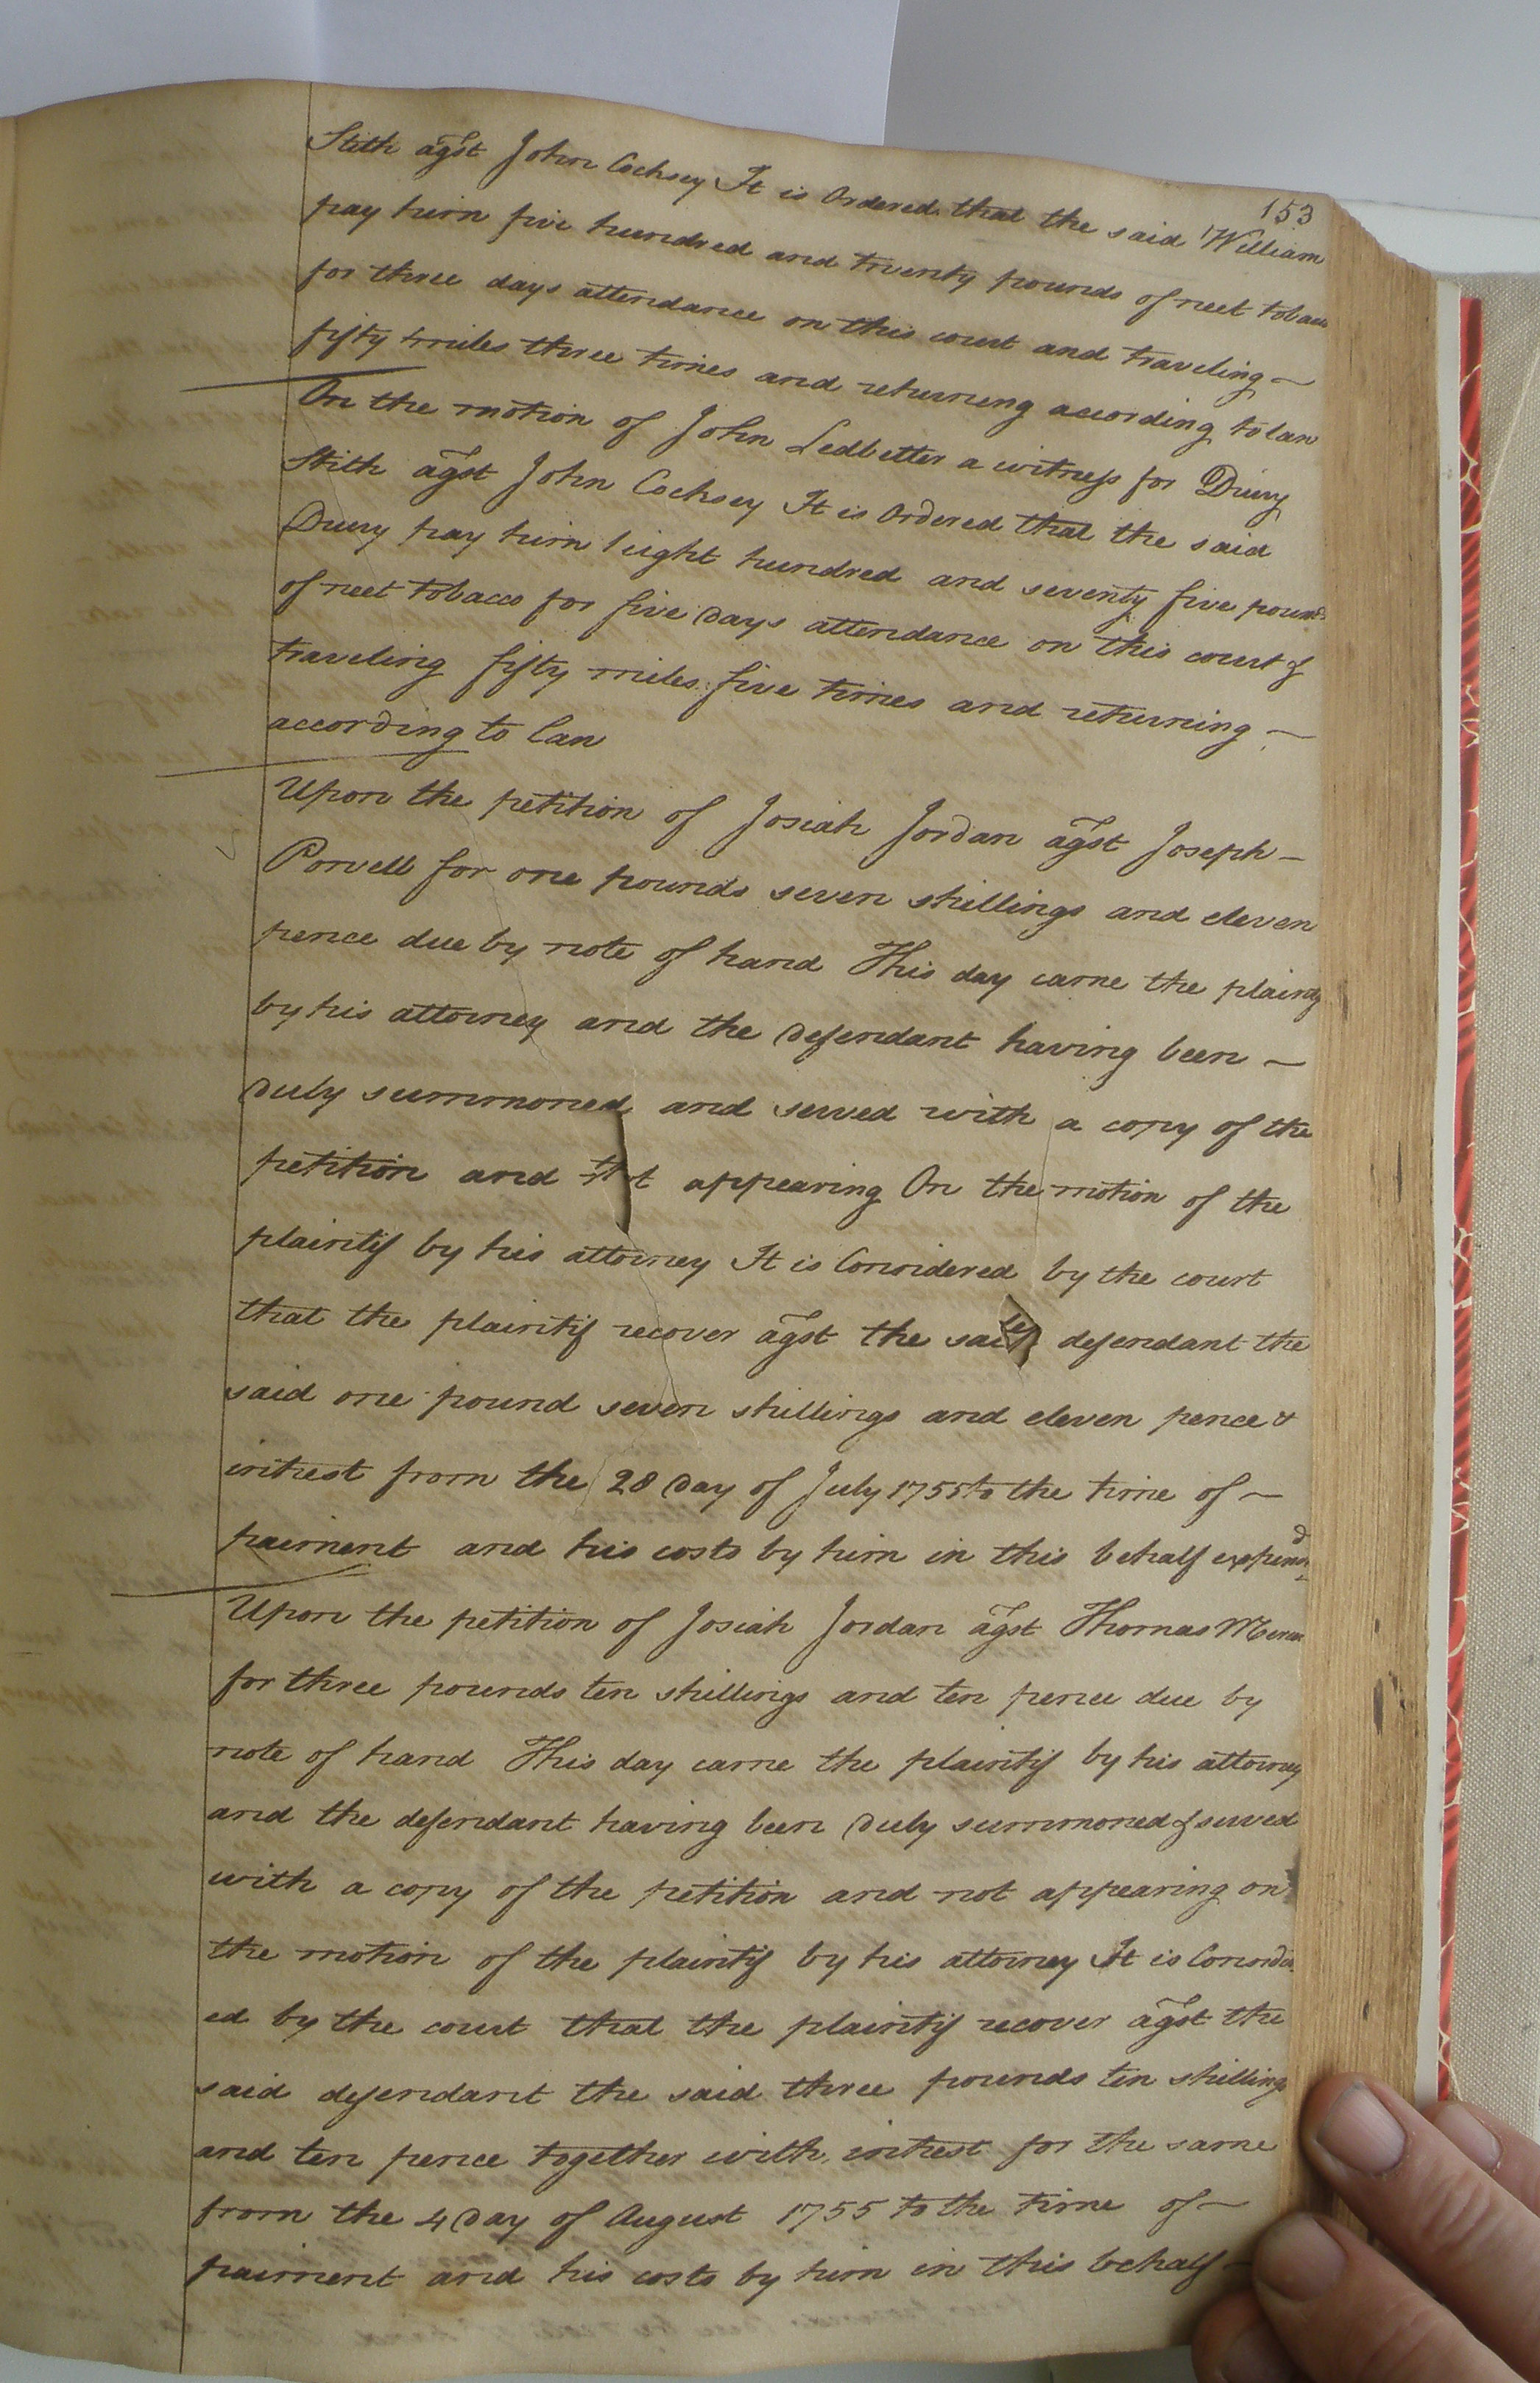 153
Stith agst John Cocksey It is Ordered that the said William
pay him five hundred and twenty pounds of neet tobacco
for three days attendance on this court and traveling
fifty miles three times and returning according to law
On the motion of John Ledbetter a witness for Drury
Stith agst John Cocksey It is Ordered that the said
Drury pay him eight hundred and seventy five pounds
of neet tobacco for five days attendance on this court &
traveling fifty miles five times and returning
according to law
Upon the petition of Josiah Jordan agst Joseph
Powell for one pounds seven shillings and eleven
pence due by note of hand This day came the plaintif
by his attorney and the defendant having been
duly summoned and served with a copy of the
petition and not appearing On the motion of the
plaintif by his attorney It is Considered by the court
that the plaintif recover agst the said defendant the
said one pound seven shillings and eleven pence &
intrest from the 28 day of July 1755 to the time of
paiment and his costs by him in this behalf expend
Upon the petition of Josiah Jordan agst Thomas
for three pounds ten shillings and ten pence due by
note of hand This day came the plaintif by his attorney
and the defendant having been duly summoned & served
with a copy of the petition and not appearing on
the motion of the plaintif by his attorney It is Consider
ed by the court that the plaintif recover agst the
said defendant the said three pounds ten shillings
and ten pence together with intrest for the same
from the 4 day of August 1755 to the time of
paiment and his costs by him in this behalf